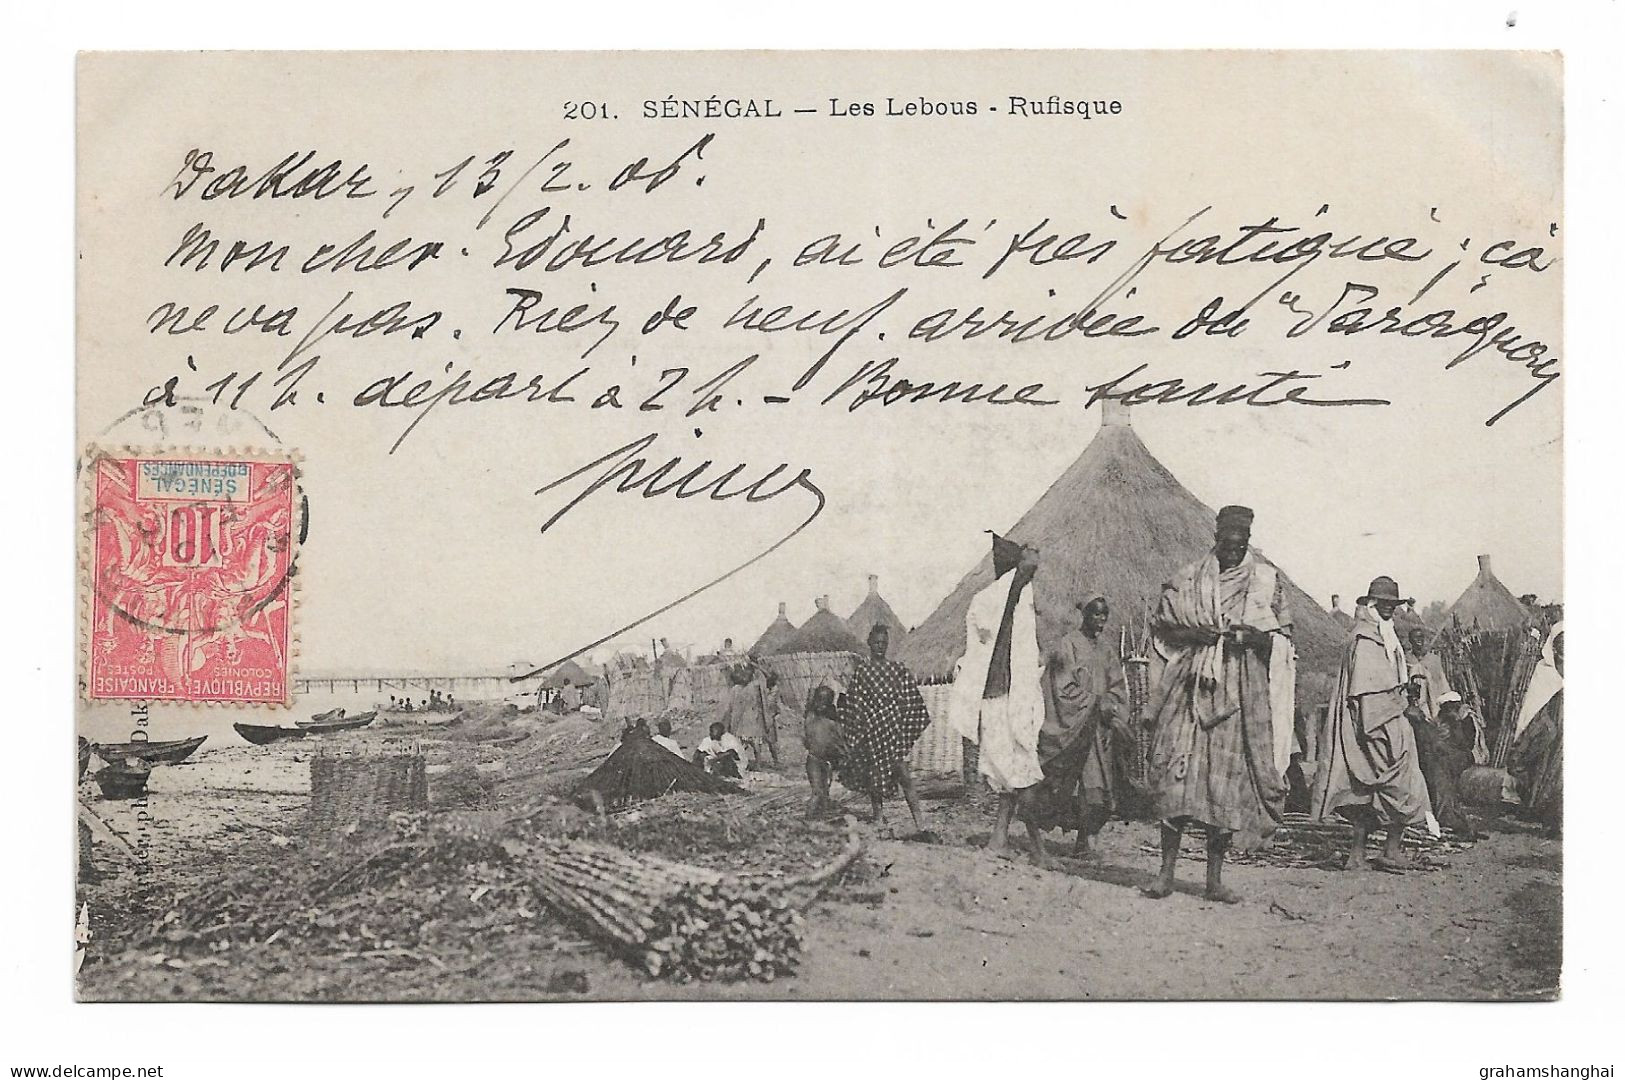 201. SÉNÉGAL — Les Lebous - Rufisque
Dakar, 13/2. 06.
Mon cher Edouard, ai été très fatigué ; ça
ne va pas. Rien de neuf. arrivée du "Paraguay
à 11 h. départ à 2 h. - Bonne santé
SÉNÉGAL
ET DÉPENDANCES
10
COLONIES POSTES
REPUBLIQUE FRANÇAISE
Dak
delcampe.net
grahamshanghai